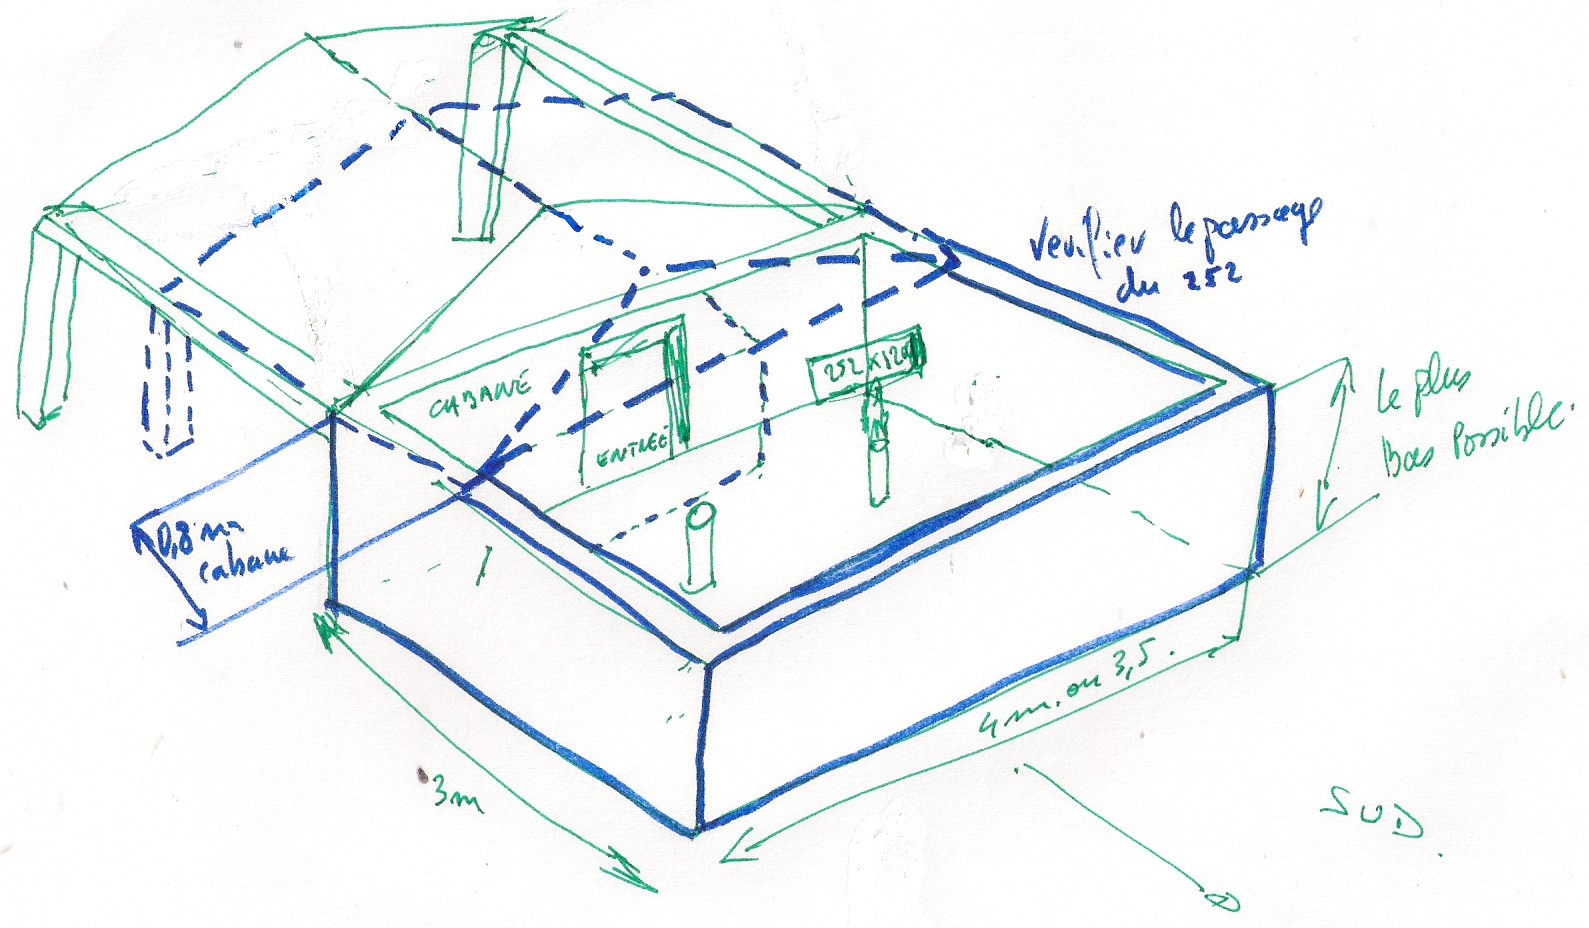 Verifier le passage
du 252
CABANE
252 x 120
ENTREE
Le plus
Bas Possible.
0,8 m
cabane
4 m. ou 3,5.
3m
SUD.